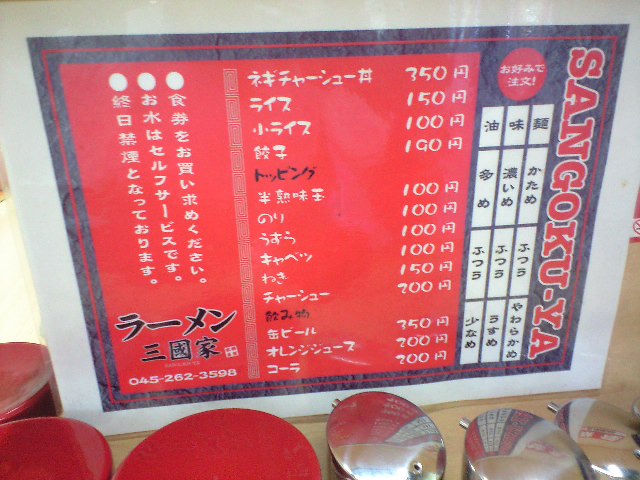 SANGOKU-YA
お好みで
注文!
麺 かため ふつう やわらかめ
味 濃いめ ふつう うすめ
油 多め ふつう 少なめ
ネギチャーシュー丼 350円
ライス 150円
小ライス 100円
餃子 190円
トッピング
半熟味玉 100円
のり 100円
うずら 100円
キャベツ 100円
ねぎ 150円
チャーシュー 200円
飲み物
缶ビール 350円
オレンジジュース 200円
コーラ 200円
●食券をお買い求めください。
●お水はセルフサービスです。
●終日禁煙となっております。
ラーメン
三國家
045-262-3598